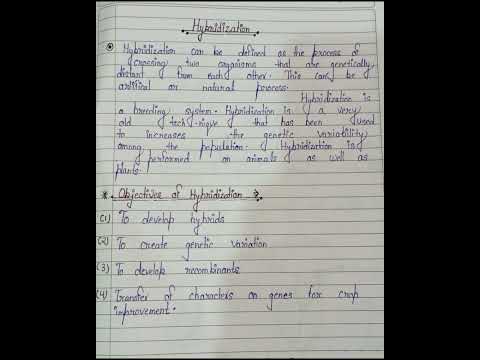 Hybridization
Hybridization can be defined as the process of
crossing two organisms that are genetically
distant from each other. This can be
artifical or natural process.
Hybridization is
a breeding system. Hybridization is a very
old tech-nique that has been used
to increases the genetic variability
among the population. Hybridization is
performed on animals as well as
plants.
* Objectives of Hybridization →
(1) To develop hybrids
(2) To create genetic variation
(3) To develop recombinants
(4) Transfer of characters on genes for crop
improvement.